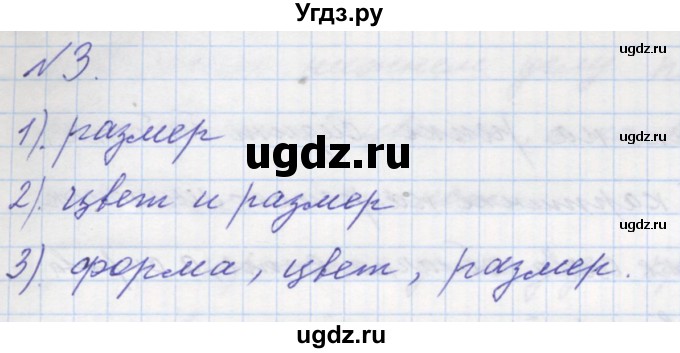 Угдз.ру
ugdz.ru
№3.
ugdz.ru
1). размер
ugdz.ru
2). цвет и размер
ugdz.ru
3) форма, цвет, размер.
ugdz.ru
ugdz.ru